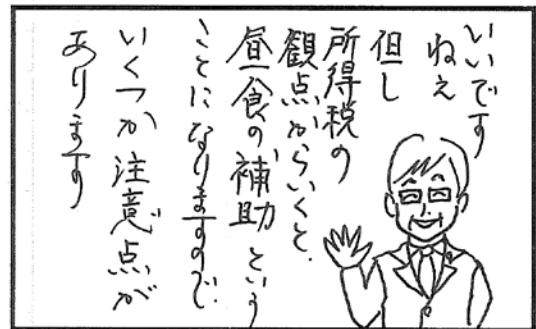 いいです
ねえ
但し
所得税の
観点からいくと、
昼食の補助という
ことになりますので、
いくつか注意点が
あります